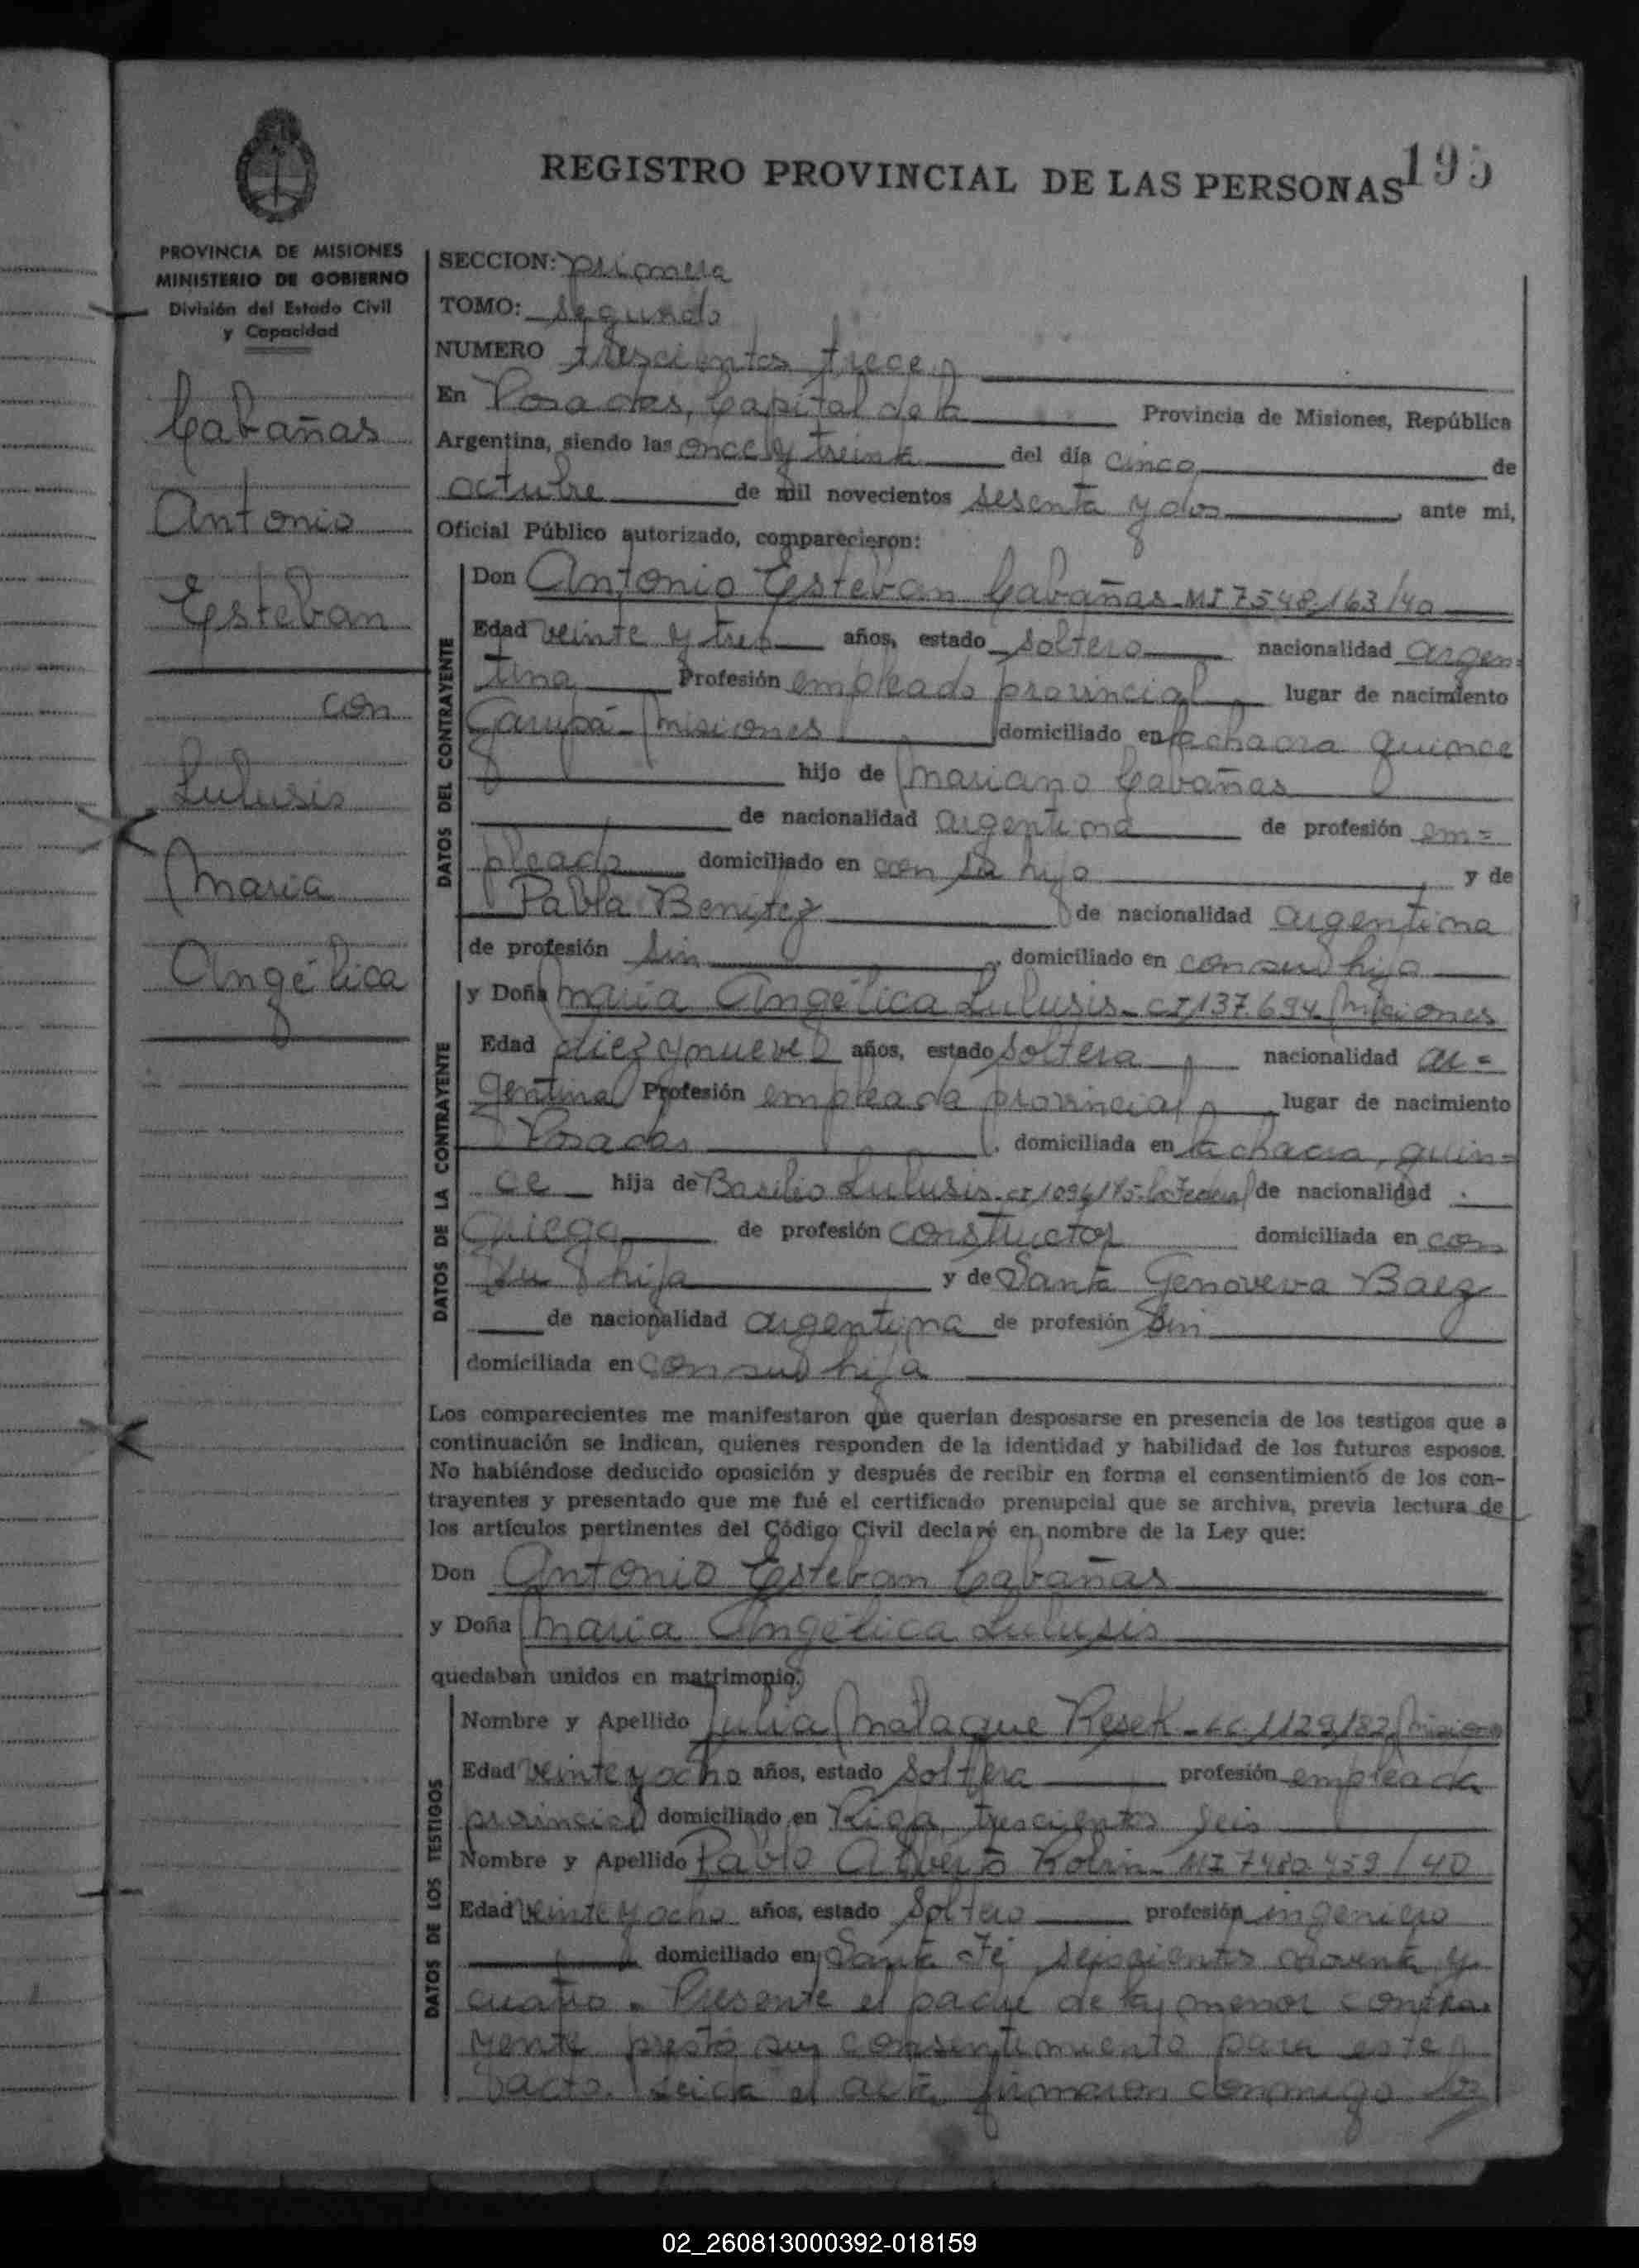 REGISTRO PROVINCIAL DE LAS PERSONAS 195
PROVINCIA DE MISIONES
MINISTERIO DE GOBIERNO
División del Estado Civil
y Capacidad
Cabañas
Antonio
Esteban
con
Lulusis
Maria
Angélica
SECCION: primera
TOMO: segundo
NUMERO trescientos trece
En Posadas, Capital de la Provincia de Misiones, República
Argentina, siendo las once y treinta del día cinco de
octubre de mil novecientos sesenta y dos, ante mi,
Oficial Público autorizado, comparecieron:
DATOS DEL CONTRAYENTE
Don Antonio Esteban Cabañas - MI 7.548.163/40
Edad veinte y tres años, estado soltero nacionalidad argen=
tina Profesión empleado provincial lugar de nacimiento
Garupá - Misiones domiciliado en la chacra quince
hijo de Mariano Cabañas
de nacionalidad argentina de profesión em=
pleado domiciliado en con su hijo y de
Pabla Benitez de nacionalidad argentina
de profesión sin, domiciliado en con su hijo
DATOS DE LA CONTRAYENTE
y Doña Maria Angélica Lulusis - CI 137.694 Misiones
Edad diez y nueve años, estado soltera nacionalidad ar=
gentina Profesión empleada provincial lugar de nacimiento
Posadas, domiciliada en la chacra, quin=
ce hija de Basilio Lulusis - CI 1096175 - de nacionalidad
griega de profesión constructor domiciliada en con
su hija y de Santa Genoveva Baez
de nacionalidad argentina de profesión sin
domiciliada en con su hija
Los comparecientes me manifestaron que querían desposarse en presencia de los testigos que a
continuación se indican, quienes responden de la identidad y habilidad de los futuros esposos.
No habiéndose deducido oposición y después de recibir en forma el consentimiento de los con-
trayentes y presentado que me fué el certificado prenupcial que se archiva, previa lectura de
los artículos pertinentes del Código Civil declaré en nombre de la Ley que:
Don Antonio Esteban Cabañas
y Doña Maria Angélica Lulusis
quedaban unidos en matrimonio.
DATOS DE LOS TESTIGOS
Nombre y Apellido Julia Malaque Resek - 112918 Misiones
Edad veinte y ocho años, estado soltera profesión empleada
provincial domiciliado en trescientos seis
Nombre y Apellido Pablo Alberto - MI 7.480.459/40
Edad veinte y ocho años, estado soltero profesión ingeniero
domiciliado en Santa Fé seiscientos noventa y
cuatro. Presente el padre de la menor contra
yente prestó su consentimiento para este
acto. Leida el acta, firmaron conmigo los
02_260813000392-018159